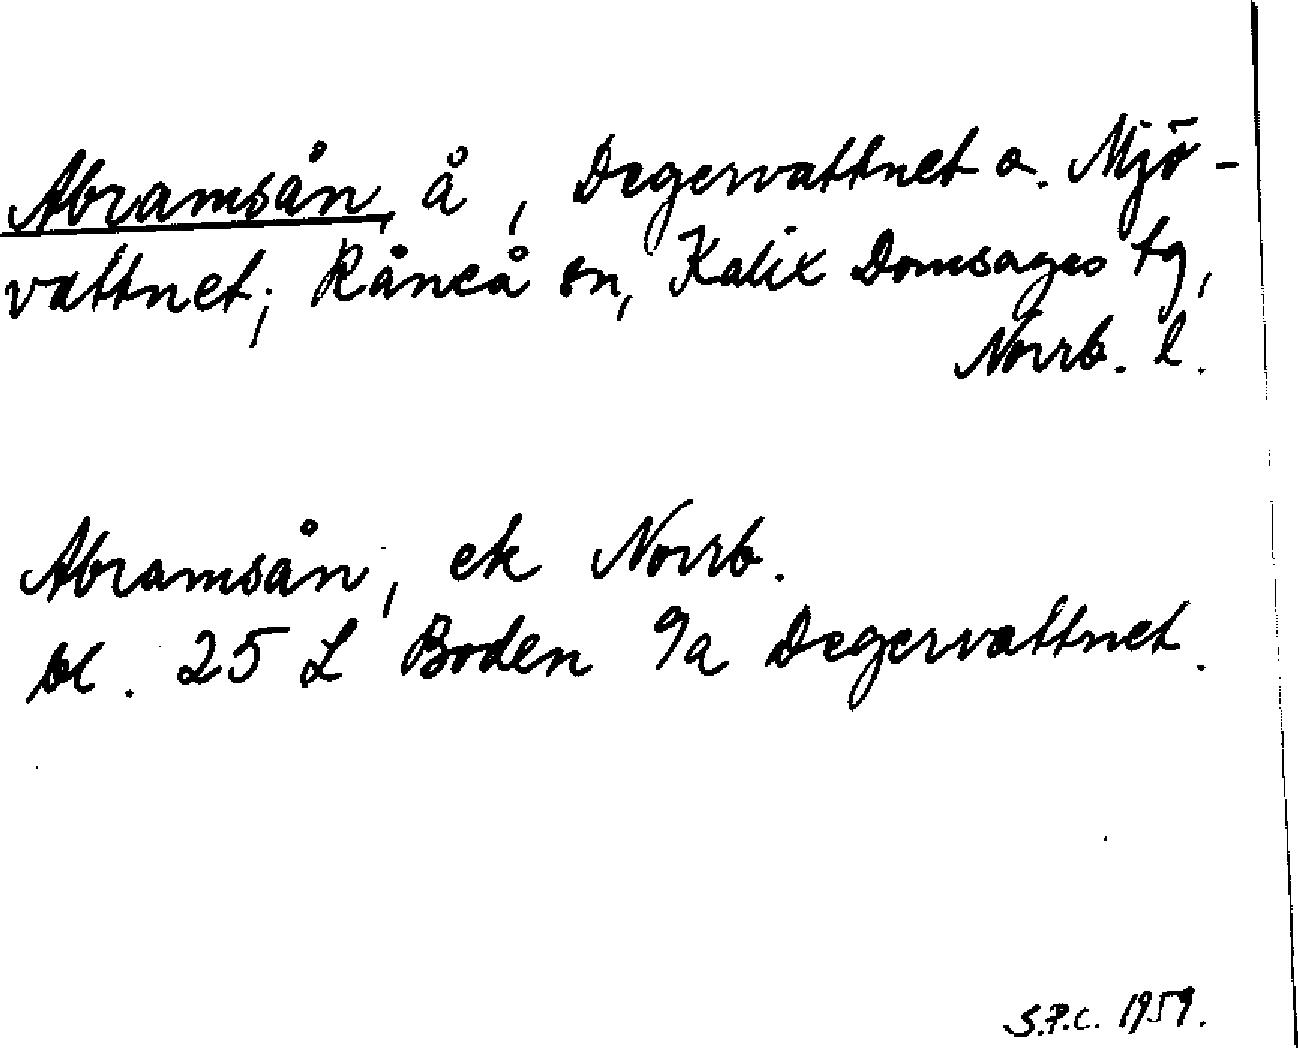 Abramsån, å, Degervattnet o. Mjö-
vattnet; Råneå sn, Kalix Domsagas tg,
Norrb. l.
Abramsån, ek Norrb.
bl. 25 L Boden 9a Degervattnet.
S.P.C. 1959.